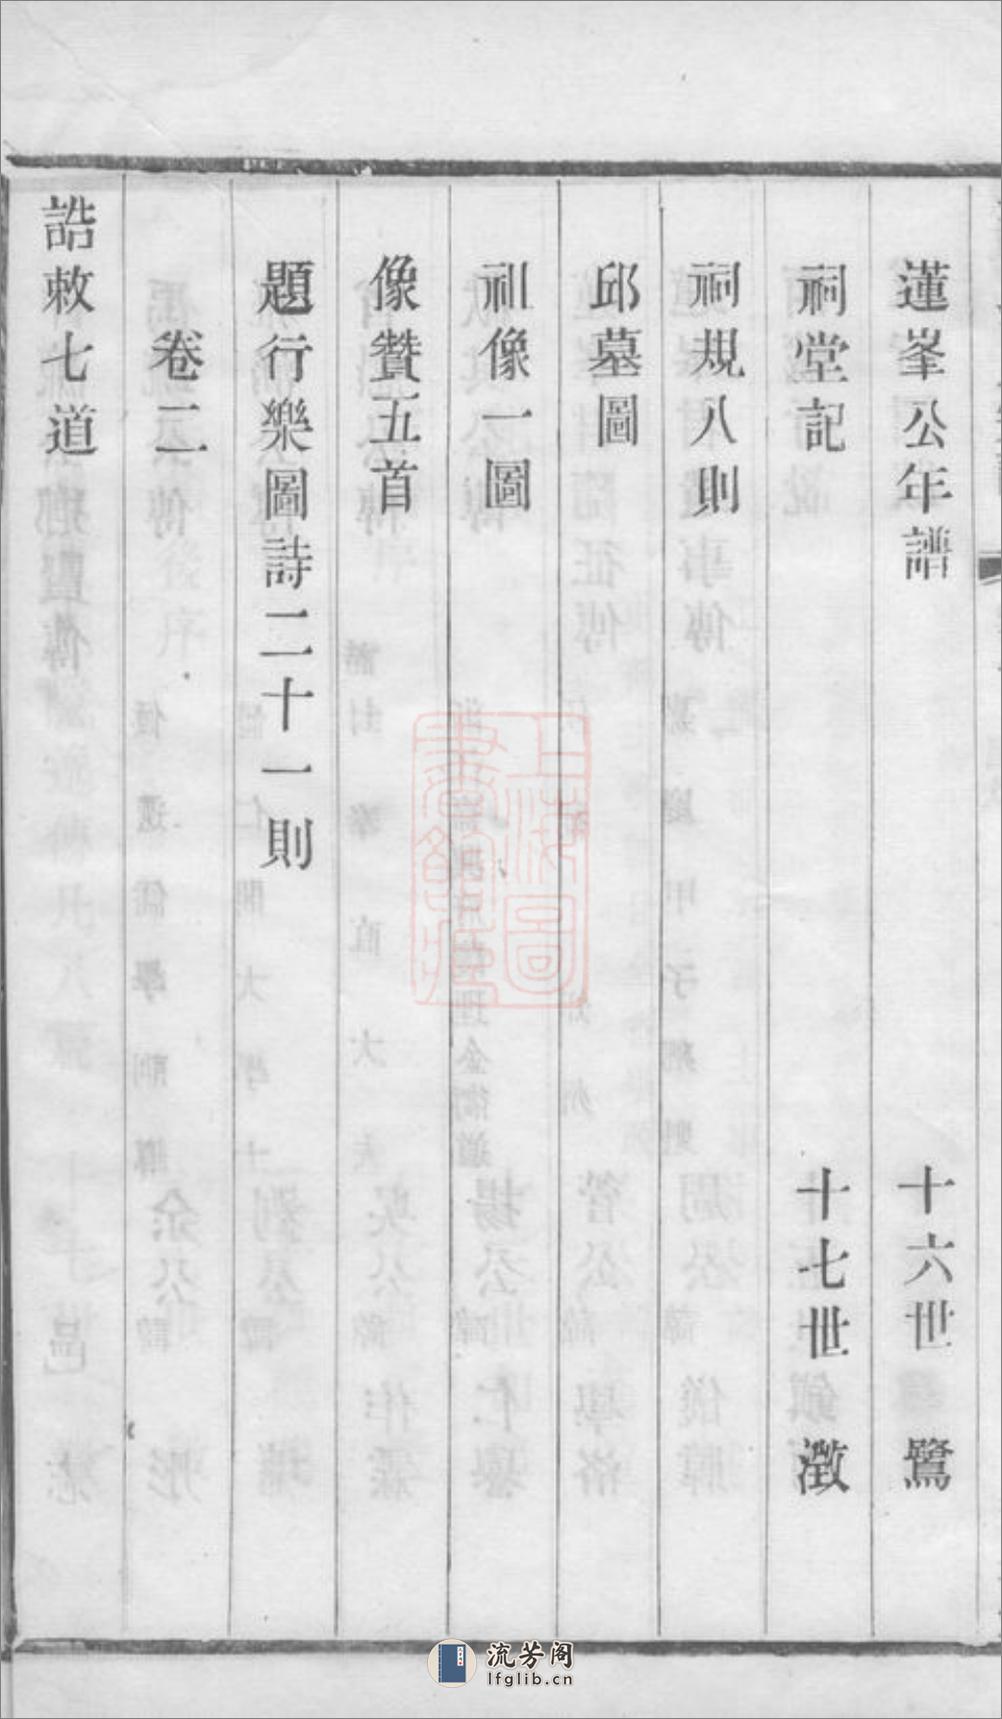 蓮峯公年譜 十六世 鷺
祠堂記 十七世 瀓
祠規八則
邱墓圖
祖像一圖
像贊五首
題行樂圖詩二十一則
卷二
誥敕七道
上海圖書館藏
流芳阁
lfglib.cn